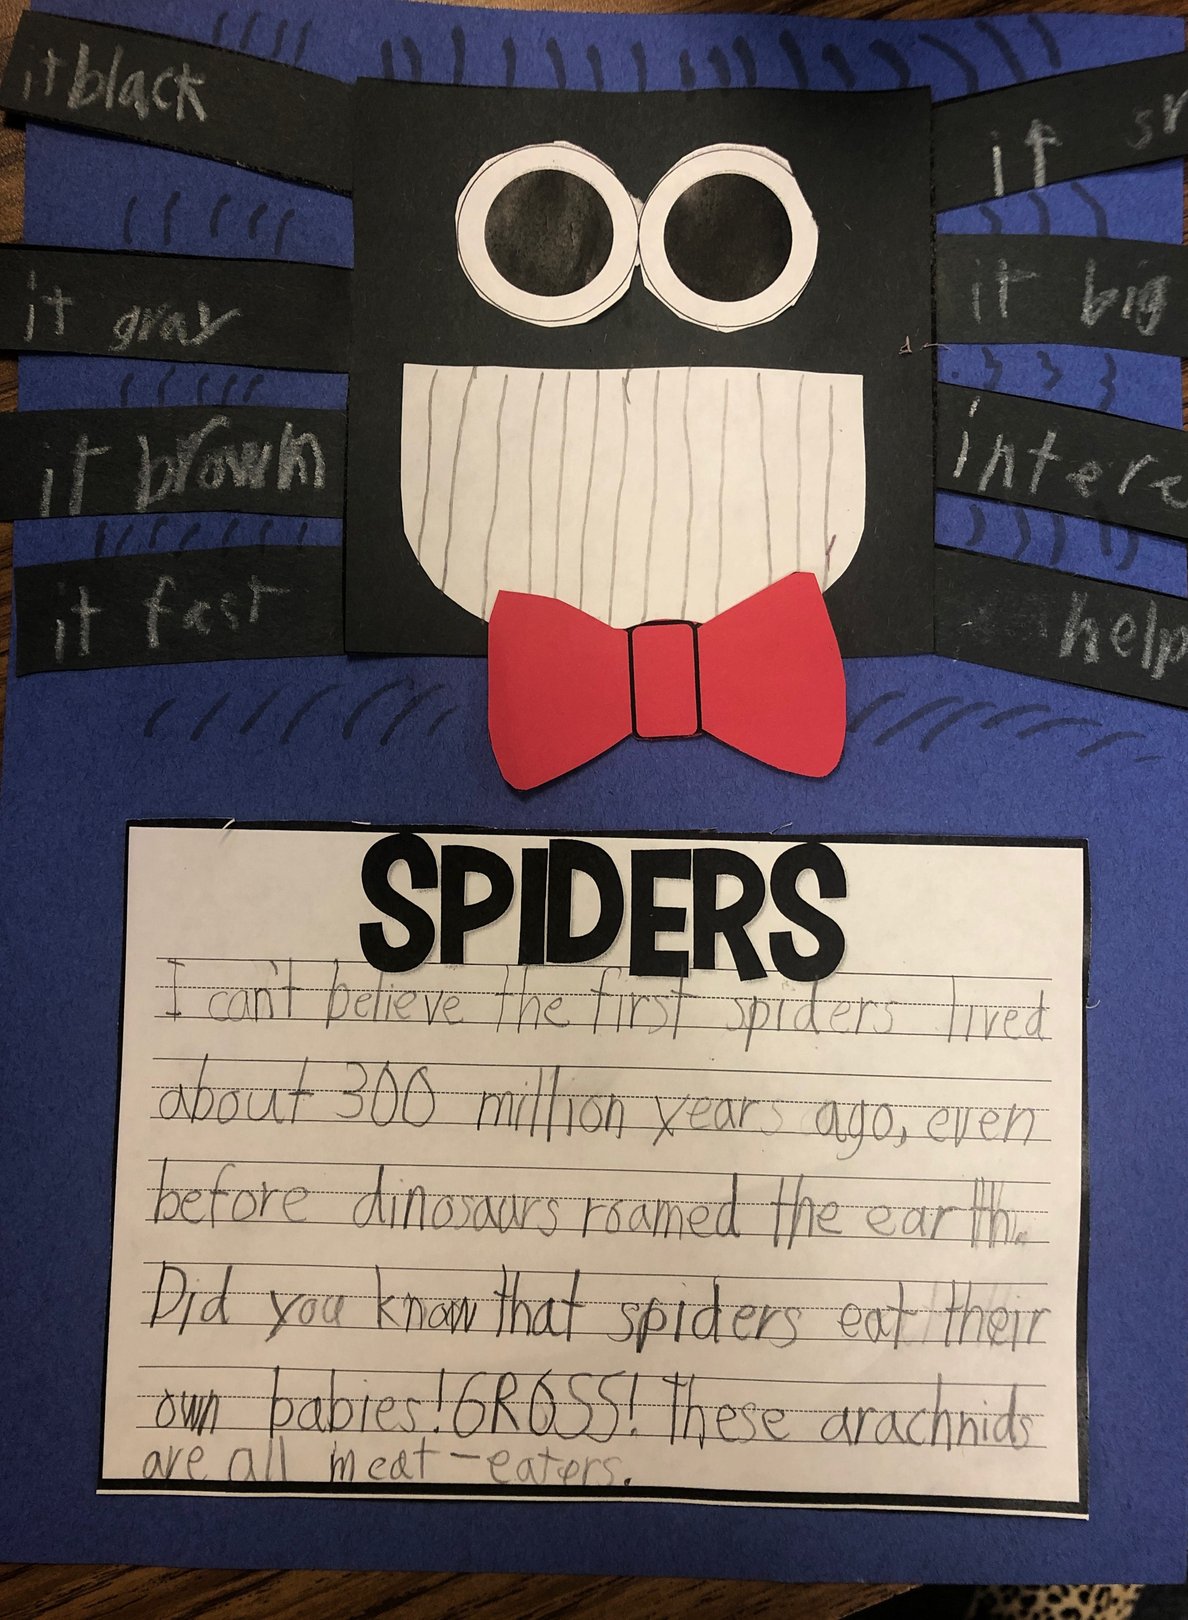 it black
it gray
it brown
it fast
it
it big
SPIDERS
I can't believe the first spiders lived
about 300 million years ago, even
before dinosaurs roamed the earth.
Did you know that spiders eat their
own babies! GROSS! These arachnids
are all meat-eaters.